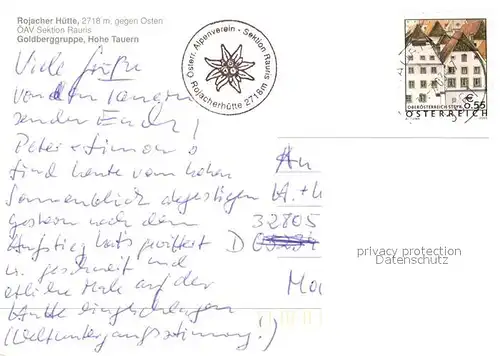 Rojacher Hütte, 2718 m, gegen Osten
ÖAV Sektion Rauris
Goldberggruppe, Hohe Tauern
Österr. Alpenverein - Sektion Rauris
Rojacherhütte 2718m
€ 0.55
OBERÖSTERREICH STEYR
ÖSTERREICH
Viele Grüße
von den Tauern
senden Euch
Peter + Simon
Sind heute vom hohen
Sonnenblick abgestiegen
Gestern nach dem
Aufstieg hat's gewittert
u. geschneit und
etliche Male auf der
Hütte eingeschlagen
(Weltuntergangsstimmung!)
An
32805
D
privacy protection
Datenschutz